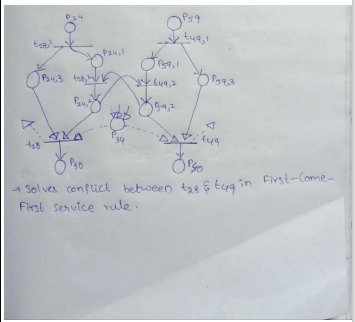 P24 P59
t28,1 t49,1
P24,1 P59,1
P24,3 t28,2 t49,2 P59,3
P24,2 P59,2
P34
t28 t49
P30
→ Solves conflict between t28 & t49 in First-Come-
First service rule.